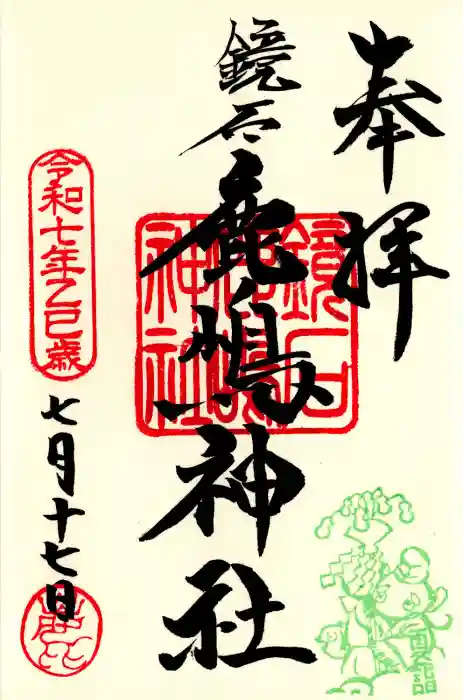 奉拝
鏡石
鹿嶋神社
鏡石
鹿嶋
神社
令和七年乙巳歳
七月十七日
夏詣